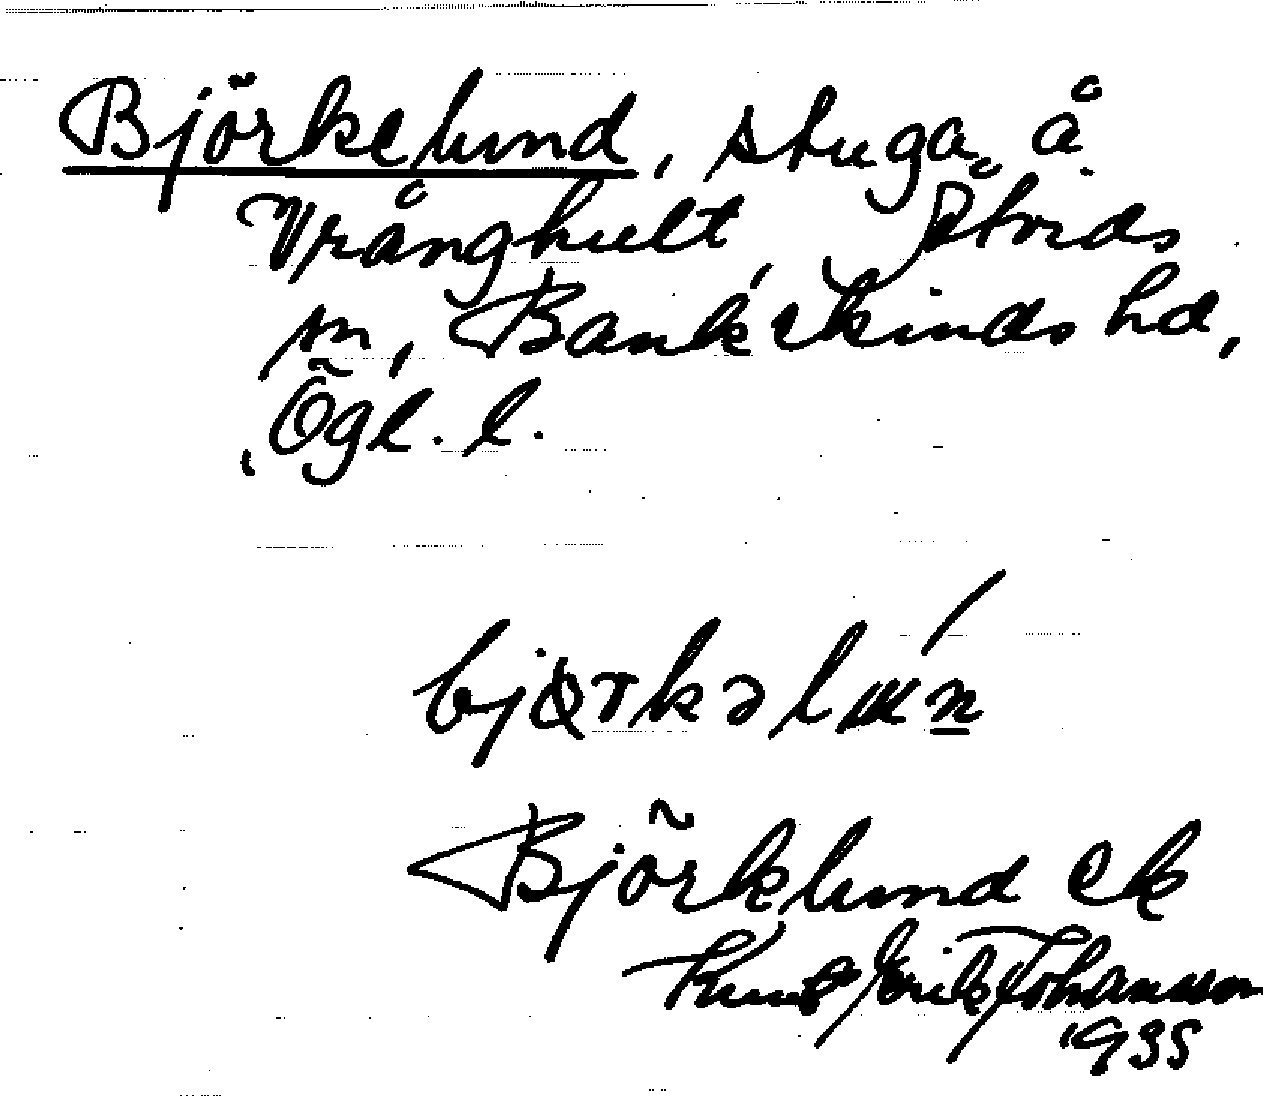 Björkelund, stuga å
Vrånghult, Åtvids
sn, Bankekinds hd,
Ögl. l.
bjørkəlun̲
Björklund ek
Knut Erik Johansson
1935